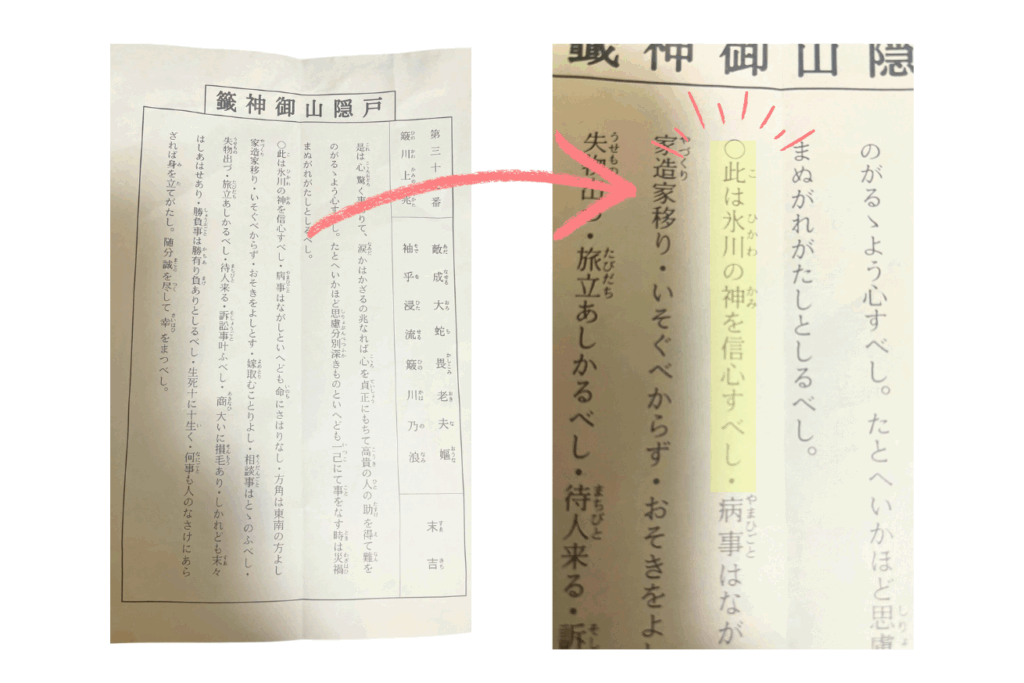 戸隠山御神籤
第三十 番
簸川上 兆
敵成大蛇畏老夫嫗
袖乎浸流簸川乃浪
末吉
是は心驚く事 りて、涙かはかざるの兆なれば心を貞正にもちて高貴の人の助を得て難を
のがるゝよう心す べし。たとへいかほど思慮分別深きものといへども一己にて事をなす時は災禍
まぬがれがたしとしるべし。
〇此は氷川の神を信心すべし・病事はながしといへども命にさはりなし・方角は東南の方よし
家造家移り・いそぐべからず・おそきをよしとす・嫁取むことりよし・相談事はとゝのふべし・
失物出づ・旅立あしかるべし・待人来る・訴訟事叶ふべし・商大いに損毛あり・しかれども末々
はしあはせあり・勝負事は勝有り負ありとしるべし・生死十に十生く・何事も人のなさけにあら
ざれば身を立てがたし。随分誠を尽して幸をまつべし。
籤神御山隠
のがるゝよう心すべし。たとへいかほど思慮
まぬがれがたしとしるべし。
〇此は氷川の神を信心すべし・病事はなが
家造家移り・いそぐべからず・おそきをよし
失物出づ・旅立あしかるべし・待人来る・訴